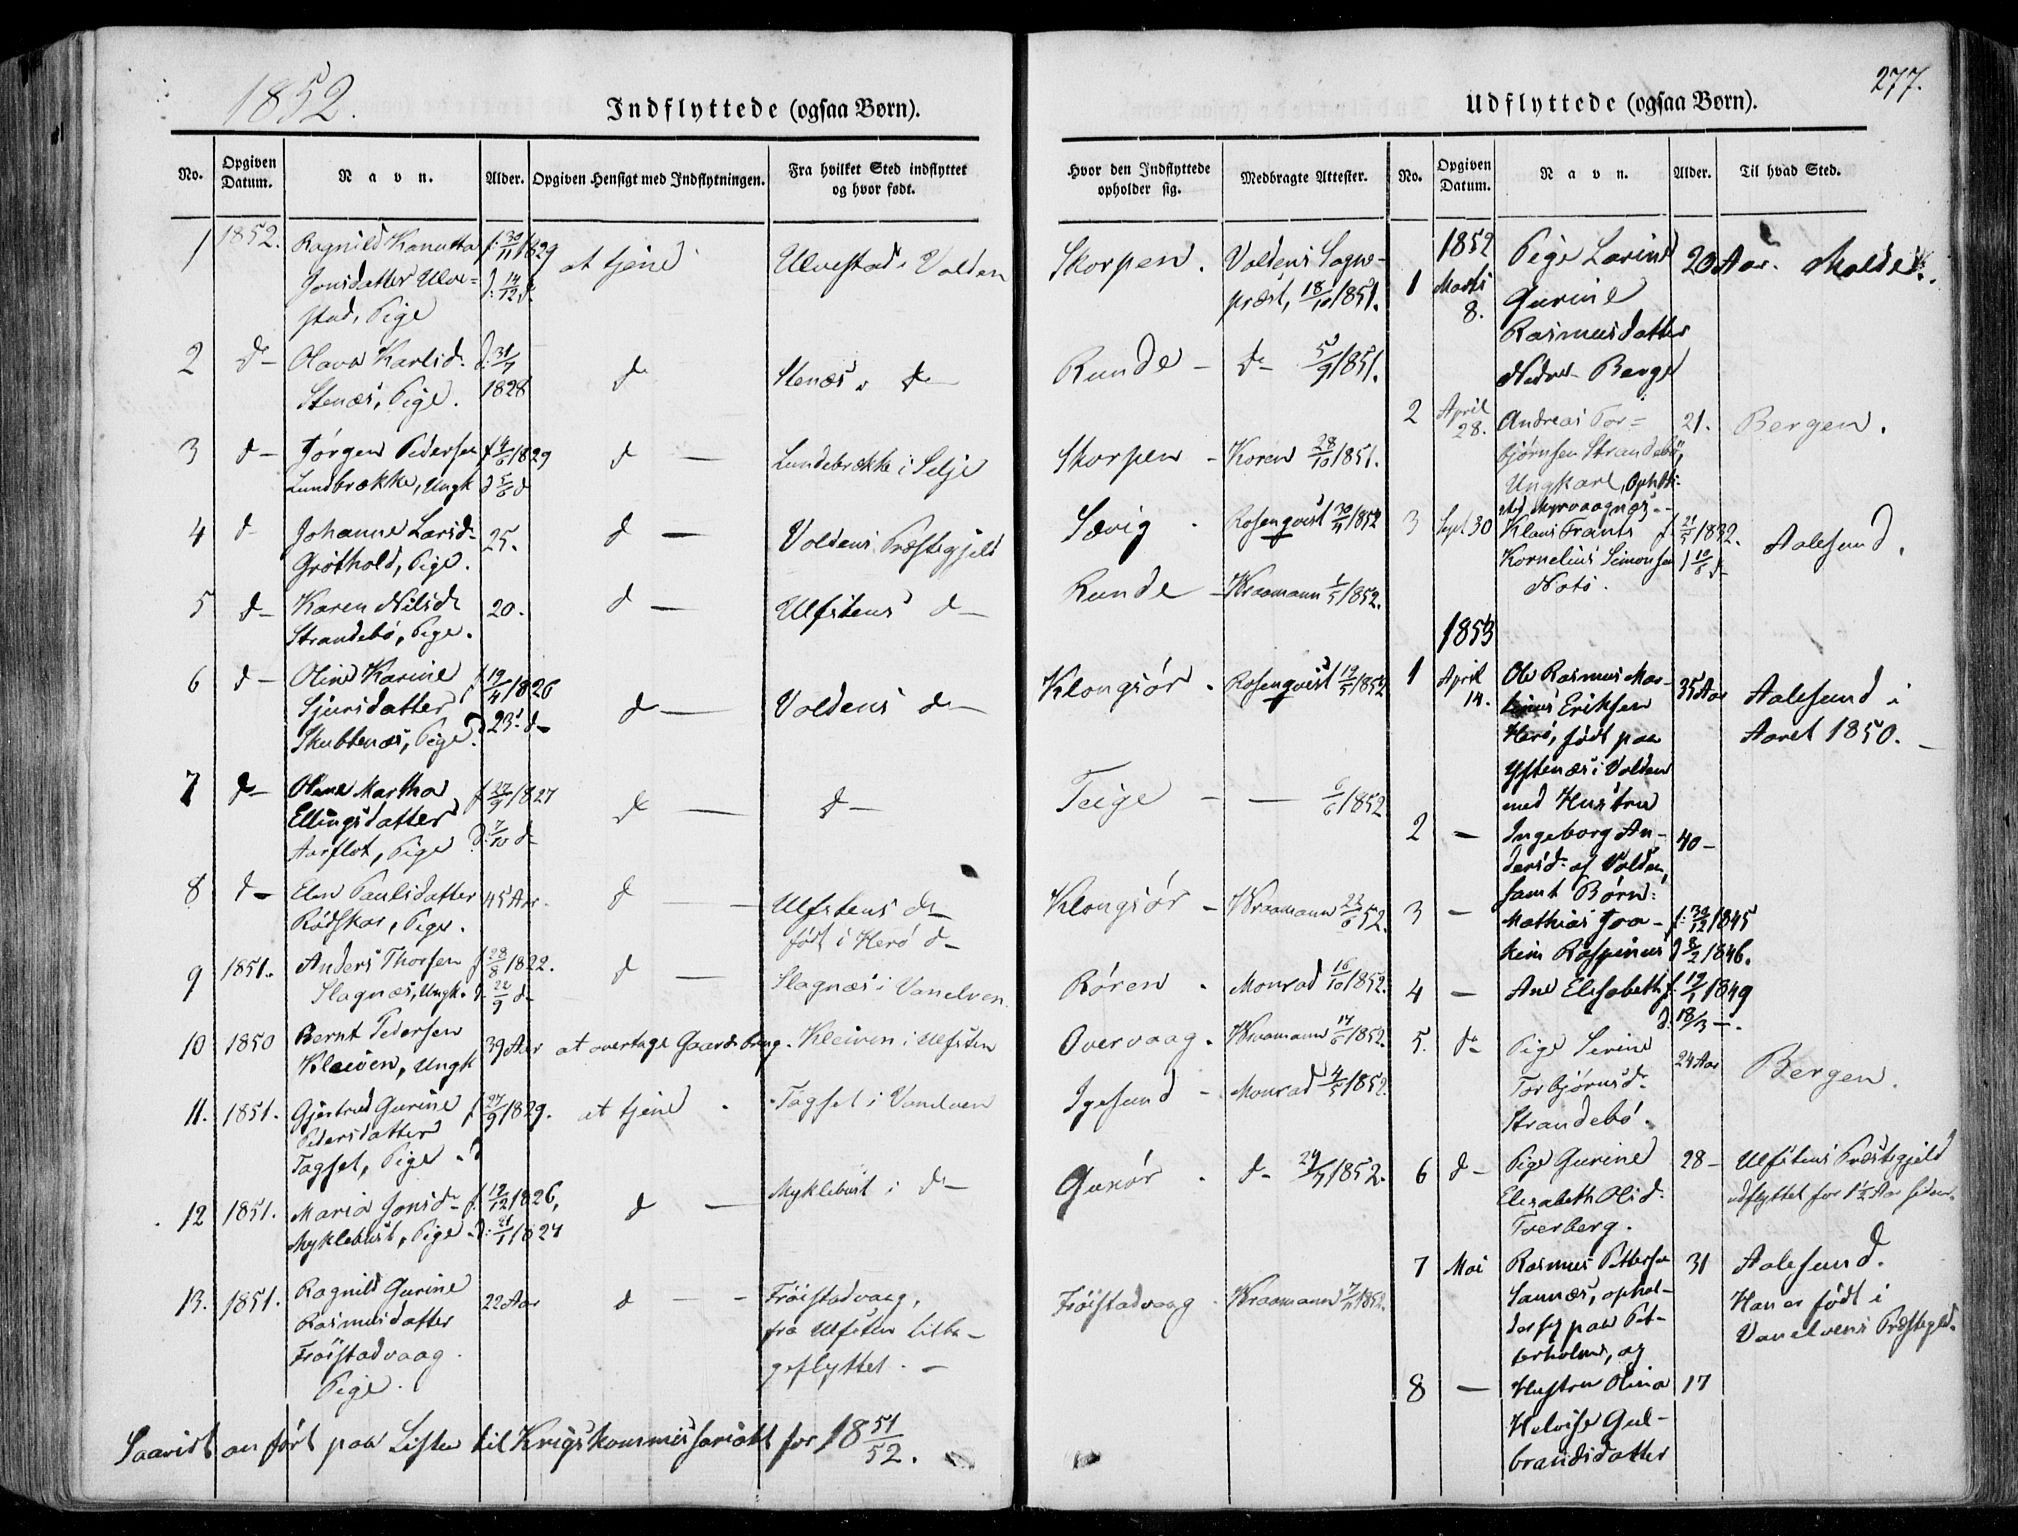 1852.
Indflyttede (ogsaa Børn).
No.
Opgiven Datum.
Navn.
Alder.
Opgiven Hensigt med Indflytningen.
Fra hvilket Sted indflyttet og hvor født.
1 1852. Ragnild Kanutta f. 30/11 1829 at tjene Ulvestad i Volden
Jonsdatter Ulve= d: 14/12 d
stad, Pige
2 d- Olava Karlsd. d: 31/7 d Stenæs i d-
Stenæs, Pige. 1828
3 d- Jørgen Pedersen f 4/6 1829 d - Lundebrække i Selje
Lundbrække, Ungk d 5/6 d
4 d- Johanne Larsd- 25. d - Voldens Præstegjeld
Grøthold, Pige.
5 d- Karen Nilsd. 20. d - Ulfstens d-
Strandebø, Pige.
6 d- Oline Karine f 19/4 1826 d - Voldens d-
Sjursdatter d 23. d-
Skubbenæs, Pige.
7 d- Oline Martha f 27/9 1827 d - d-
Ellingsdatter d: 7/10 d
Aarflot, Pige
8 d- Elen Paulsdatter 45 Aar. d - Ulfstens d-
Rødskar, Pige. født i Herø d-
9 1851. Anders Thorsen f 28/8 1822. d - Slagnæs i Vanelven.
Slagnæs, Ungk. d. 22/9 d-
10 1850 Bernt Pedersen 39 Aar at overtage Gaardsbrug. Kleiven i Ulfsten
Kleiven, Ungk
11. 1851. Gjertrud Gurine f 27/9 1829. at tjene Tagset i Vanelven
Pedersdatter
Tagset, Pige
12 1851. Maria Jonsd- f. 19/12 1826, d - Myklebust i d-
Myklebust, Pige d: 21/1 1827
13. 1851. Ragnild Gurine 22 Aar d - Frøistadvaag,
Rasmusdatter fra Ulfsten tilba-
Frøistadvaag. geflyttet. -
Pige.
Saavist anført paa Listen til Krigskommissariatet for 18 51/52.
277.
Udflyttede (ogsaa Børn).
Hvor den Indflyttede opholder sig.
Medbragte Attester.
No.
Opgiven Datum.
Navn.
Alder.
Til hvad Sted.
Skorpen. Voldens Sogne-
præst, 18/10 1851.
Runde - d- 5/9 1851.
Skorpen - Koren 28/10 1851.
Sævig - Rosenqvist 30/4 1852
Runde - Kraamann 1/5 1852.
Klongsør. Rosenqvist 19/5 1852
Teige - - 6/6 1852
Klongsør - Kraamann 22/6 52.
Røren - Monrad 16/10 1852.
Overvaag. Kraamann 14/6 1852.
Igesund - Monrad 4/5 1852.
Gurør - d- 29/7 1852.
Frøistadvaag - Kraamann 7/11 1852.
1852
1 Marti 8. Pige Larine 20 Aar. Molde.
Gurine
Rasmusdatter
Nedre Berge
2 April 28. Andreas Tor= 21. Bergen.
bjørnsen Strandebø,
Ungkarl, Ophold-
sted Myrvaagnæs.
3 Sept. 30 Klaus Frants f. 21/5 1832. Aalesund.
Kornelius Simonsen d 10/6 d-
Notø.
1853
1 April 14. Ole Rasmus Mar- 35 Aar Aalesund i
tinus Eriksen Aaret 1850. -
Herø, født paa
Yftenæs i Volden
med Hustru
2 - Ingeborg An- 40 -
dersd. af Volden,
samt Børn:
3 - Mathias Joa- f: 30/12 1845
kim Raspinus d 8/2 1846.
4 - Ane Elisabeth f. 19/1 1849
d: 18/3 -.
5. d- Pige Serine 24 Aar Bergen.
Torbjørnsd-
Strandebø.
6 d- Pige Gurine 28 - Ulfstens Præstegjeld
Elisabeth Olsd. udflyttet for 1½ Aar siden.
Tverberg.
7 Mai Rasmus Pettersen 31 Aalesund.
Sannæs, ophol- Han er født i
der sig paa Pet- Vanelvens Præstegjeld.
terholmen, og
8 - Hustru Olina 17
Helvise Gul-
brandsdatter